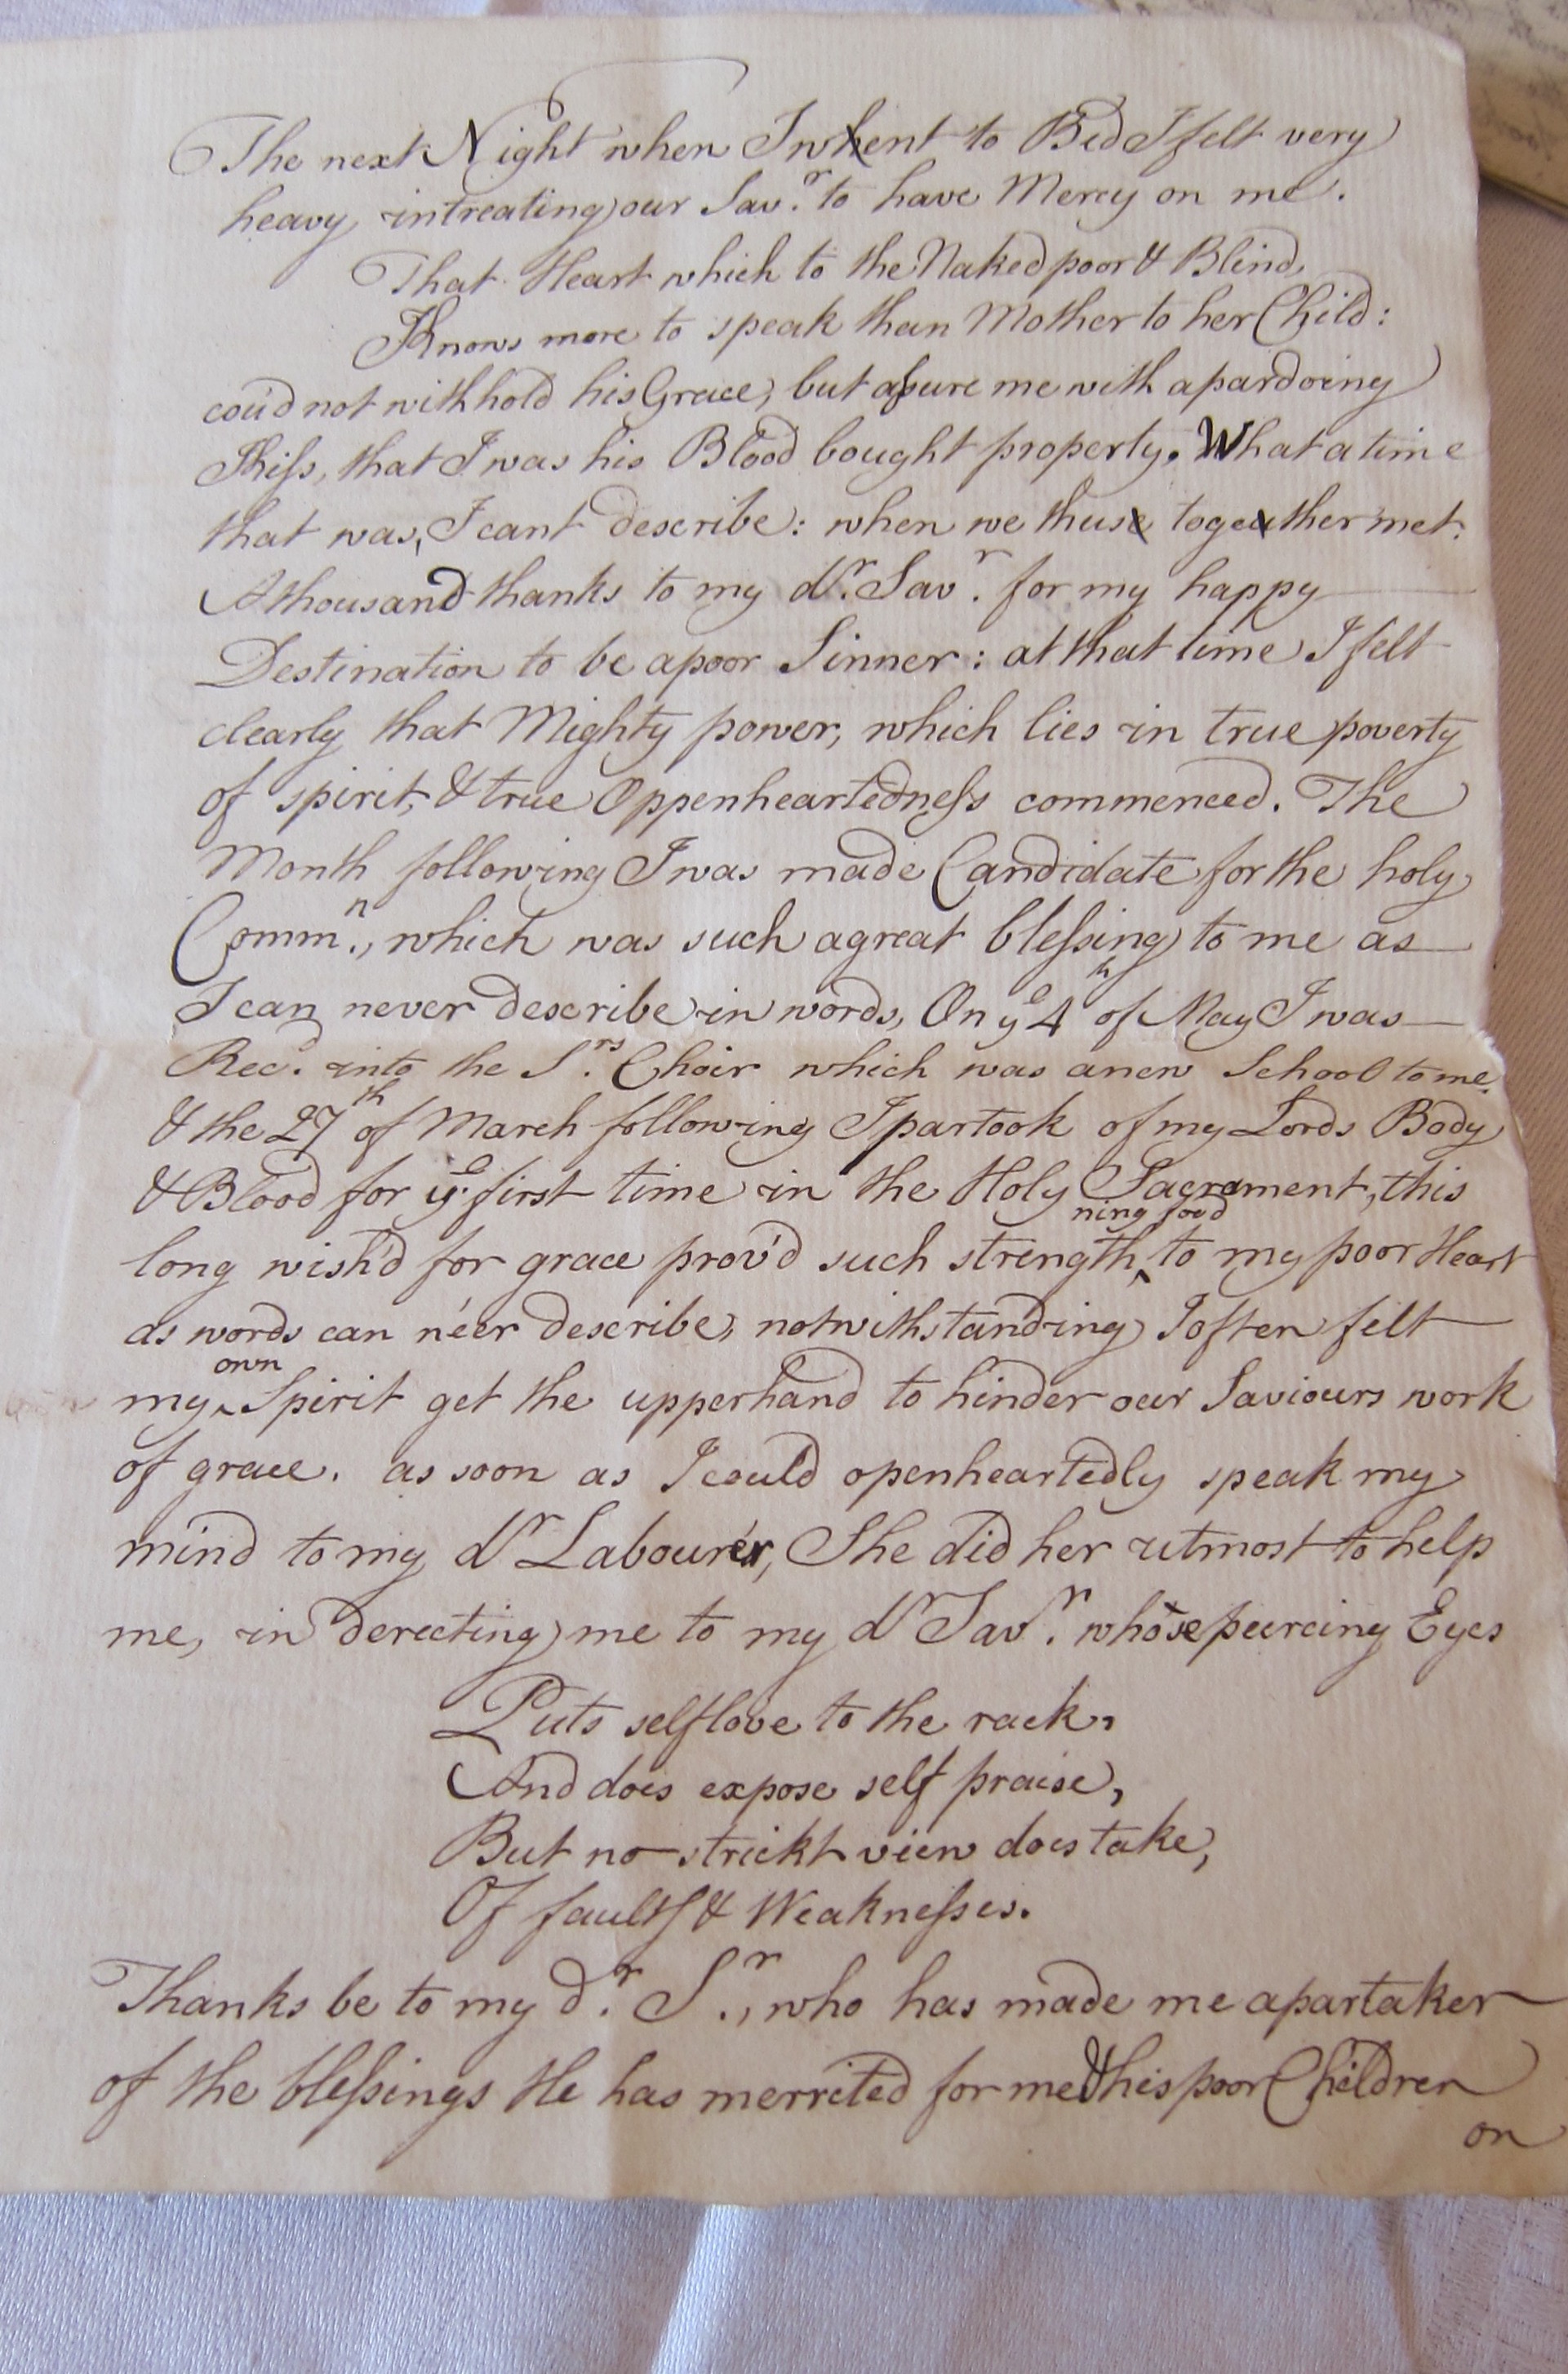 The next Night when I went to Bed I felt very
heavy intreating our Sav.r to have Mercy on me.
That Heart which to the Naked poor & Blind
Knows more to speak than Mother to her Child:
cou'd not withhold his Grace, but assure me with a pardoing
Kiss, that I was his Blood bought property. What a time
that was, I cant describe: when we thus together met.
A thousand thanks to my d.r Sav.r for my happy
Destination to be a poor Sinner: at that time I felt
clearly that Mighty power, which lies in true poverty
of spirit, & true Oppenheartedness commenced. The
Month following I was made Candidate for the holy
Comm.n, which was such a great blessing to me as
I can never describe in words, On ye 4th of May I was
Rec. into the S.rs Choir which was a new School to me.
& the 27th of March following I partook of my Lords Body
& Blood for ye first time in the Holy Sacrament, this
ning food
long wish'd for grace prov'd such strength^ to my poor Heart
as words can né'er describe, notwithstanding I often felt
own
my^ Spirit get the upperhand to hinder our Saviours work
of grace. as soon as I could openheartedly speak my
mind to my dr Labourer, She did her utmost to help
me, in derecting me to my dr Sav.r whose peircing Eyes
Puts selflove to the rack,
And does expose self praise,
But no strickt view does take,
Of faults & Weaknesses.
Thanks be to my d.r S.r, who has made me a partaker
of the blessings He has merrited for me & his poor Children
on